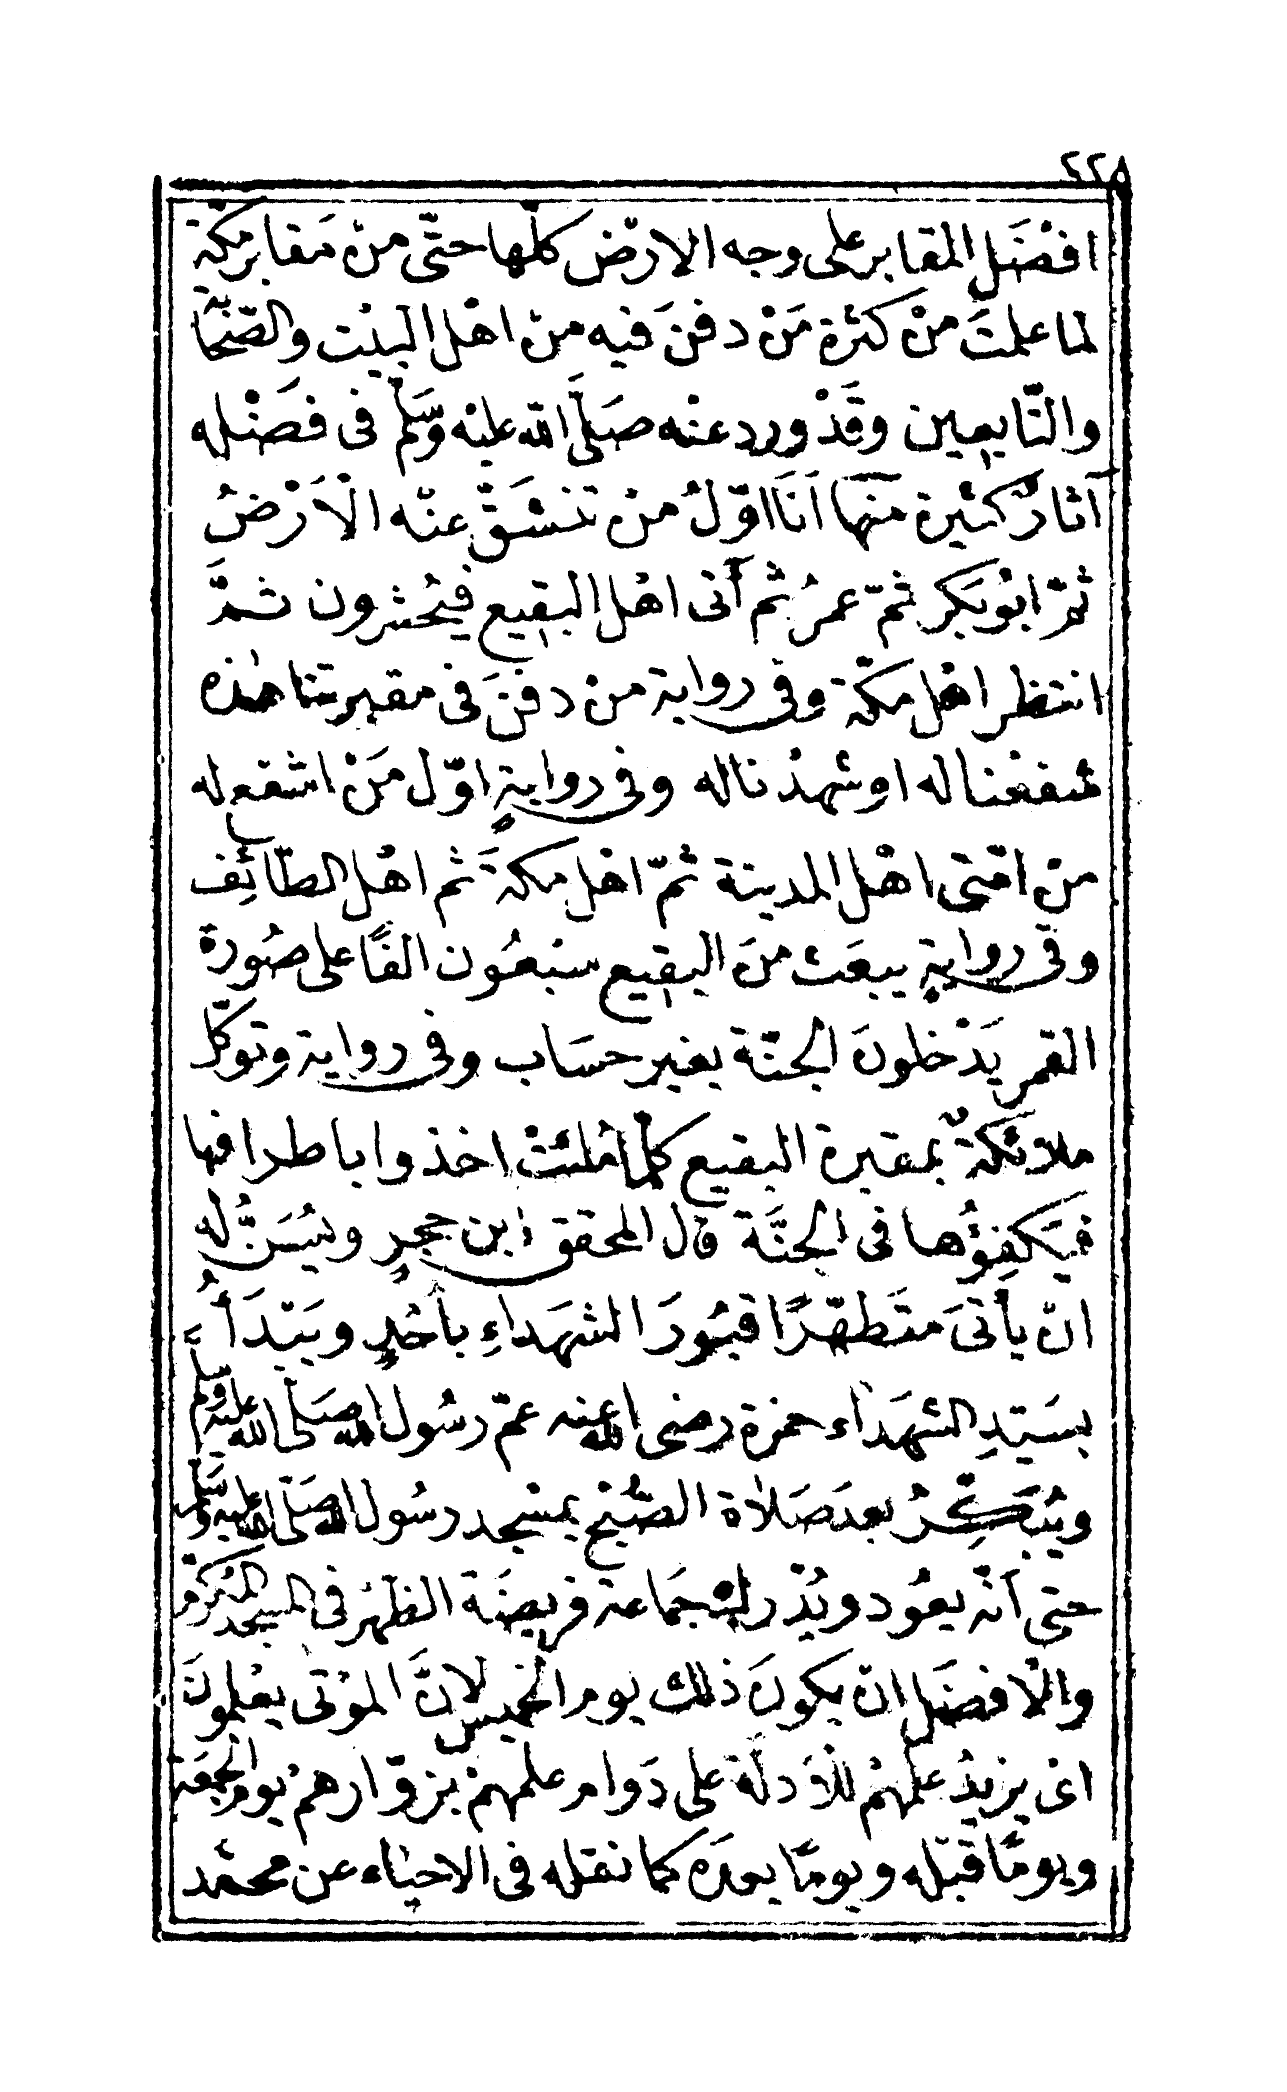 ٢٢٥
افْضَل المقابر على وجه الارْض كلّها حتّى منْ مقابر مكّة
لما علمتَ منْ كثرة مَنْ دفنَ فيه منْ اهْل البيْت والصّحَابة
والتّابعين وقَدْ ورد عنْه صَلَّى الله عليْه وسَلّم فى فضَْله
آثارٌ كثيْرة منْهَا اَنَا اوّلُ منْ تنْشَقّ عنْه الْاَرْضُ
ثمّ ابُوبَكر ثمّ عمرُ ثُم آتى اهْل البقيع فيُحْشرون ثمَّ
انتظر اهْل مكّة وفى رواية منْ دفنَ فى مقبرتنا هذه
شفعْناله اوشهدْناله وفى روايةٍ اوّل مَنْ اشفع له
منْ امّتى اهْل المدينة ثمّ اهل مكةَ ثم اهْل الطّائِف
وفى روايةٍ يبعَث منَ البقيع سبْعُون الفًا على صُورة
القمر يَدْخلونَ الجنّة بغير حسَاب وفى رواية وتوكّل
ملائكةٌ بمقبرة البقيع كلّما امْلئتْ اخذوا باطرافها
فيَكفِؤُها فى الجنَّة قال المحقق ابن حجرٍ ويُسَنُّ له
انْ يأْتىَ متَطهّرًا قبُورَ الشهَداءِ بأُحُدٍ ويَبْدَأُ
بسَيّدِ الشهَداء حمزة رضى الله عنه عمّ رسُول الله صَلى الله عليه وسلم
ويُبَكِّرُ بعدَ صَلاة الصّبْح بمسْجد رسُول الله صَلّى الله عليه وسَلم
حتى اَنْه يعُود ويُدْرك جمَاعة فريضَة الظهْر فى المسجد المُكرّم
والْافضَل انْ يكونَ ذلك يوم الخميس لانَّ الموْتى يعْلمونَ
اىْ يزيدُ علمهُمْ للْاَدلّة على دَوام علمهمْ بزوّارهمْ يوم الجمعَة
ويومًا قبْله ويومًا بعدَه كما نقله فى الاحيَاء عن محمّد